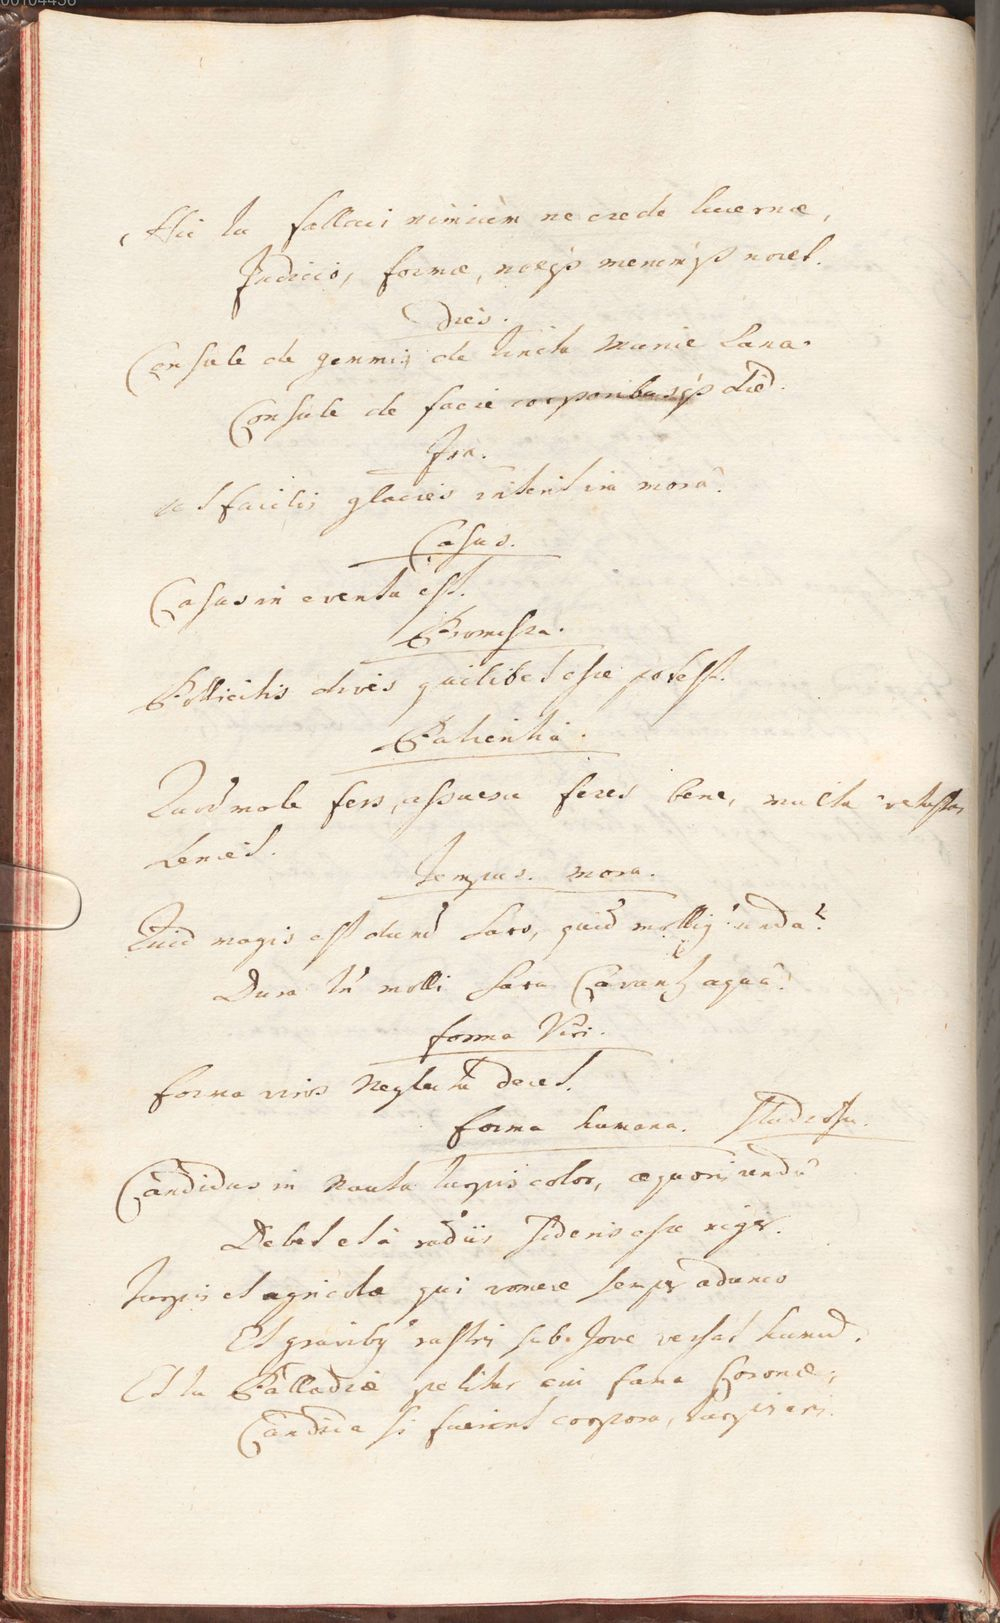 00104436
Hic tu fallaci nimium ne crede lucernæ,
Judicio, formæ, noxq; merumq; nocet.
Dies.
Consule de gemmis, de tincta Murice Lana.
Consule de facie corporibusq; diē.
Ira.
ut facilis glacies interit ira morâ.
Casus.
Casus in eventu est.
Promissa.
Pollicitis dives quilibet esse potest.
Patientia.
Quod male fers, assuesce feres bene, multa vetustas
Leniet.
Tempus. mora.
Quid magis est durū Saxo, quid molliq undâ?
Dura tñ molli saxa Cavantur aquâ.
forma Viri.
forma viros Neglecta decet.
forma humana. Studiosa.
Candidus in Nauta turpis color, æquoris undâ
Debet et à radiis Sideris esse niger.
Turpis et agricolæ qui vomere semper adunco
Et gravibq rastris sub Jove versat humū.
Et tu Palladiæ petitur cui fama Coronæ,
Candida si fuerint corpora, turpis eris.